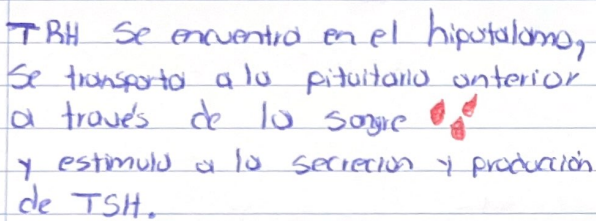 TRH se encuentra en el hipotalamo,
se transporta a la pituitaria anterior
a través de la sangre
y estimula a la secrecion y producción
de TSH.